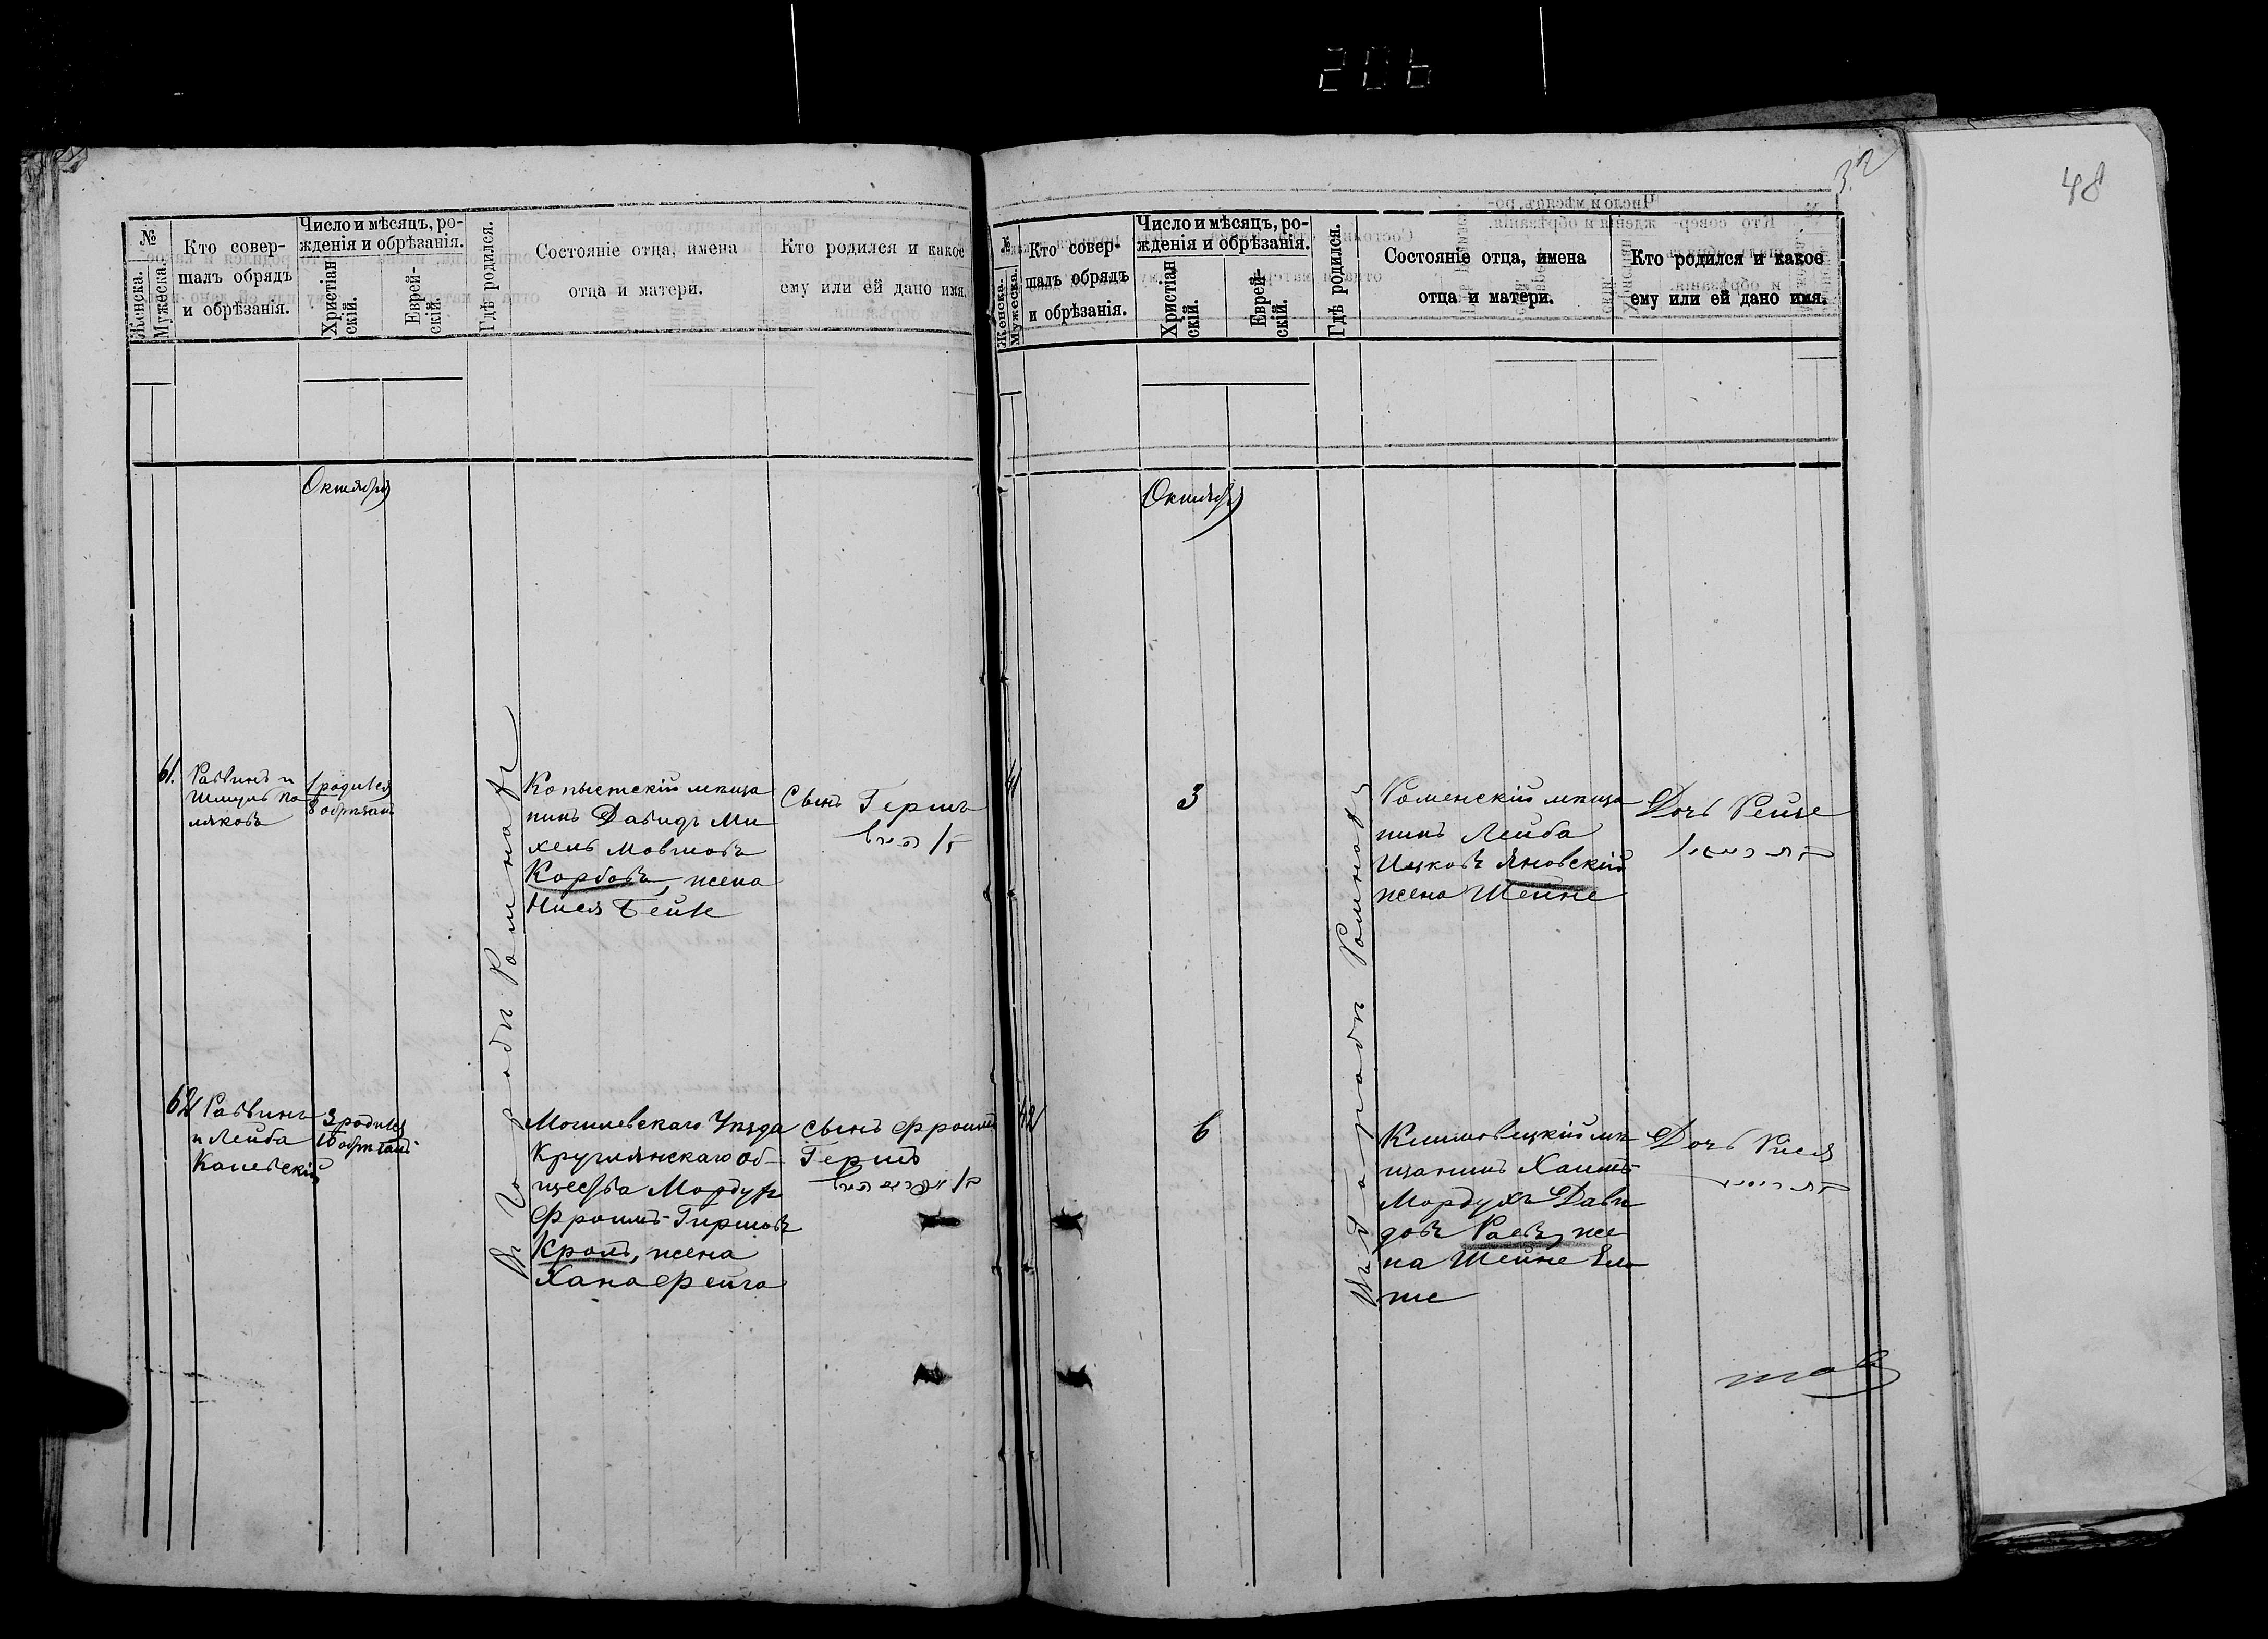 206
48
32
№
Женска.
Мужеска.
Кто совер-
шалъ обрядъ
и обрѣзанія.
Число и мѣсяцъ, ро-
жденія и обрѣзанія.
Христіан
скій.
Еврей-
скій.
Гдѣ родился.
Состояніе отца, имена
отца и матери.
Кто родился и какое
ему или ей дано имя.
Октября
61.
Раввинъ и
Шмуль По
ляковъ
1 родился
8 обрѣзанъ
Въ городѣ Ромнахъ
Копыстскій мѣща
нинъ Давидъ Ми
хель Мовшовъ
Корбовъ, жена
Нися Бейле
Сынъ Гершъ
בן הירש
62
Раввинъ
и Лейба
Каневскій
3 родился
10 обрѣзанъ
Могилевскаго Уѣзда
Круглянскаго об-
щества Мордухъ
Фроимъ Гиршовъ
Кроль, жена
Хана Фейга
Сынъ Фроимъ
Гершъ
№
Женска.
Мужеска.
Кто совер-
шалъ обрядъ
и обрѣзанія.
Число и мѣсяцъ, ро-
жденія и обрѣзанія.
Христіан
скій.
Еврей-
скій.
Гдѣ родился.
Состояніе отца, имена
отца и матери.
Кто родился и какое
ему или ей дано имя.
Октября
41
3
Въ городѣ Ромнахъ
Роменскій мѣща
нинъ Лейба
Ицковъ Яновскій
жена Шейне
Дочь Рейзе
42
6
Климовецкій мѣ
щанинъ Хаимъ
Мордухъ Дави
довъ Раевъ, же
на Шейне
Дочь Рися